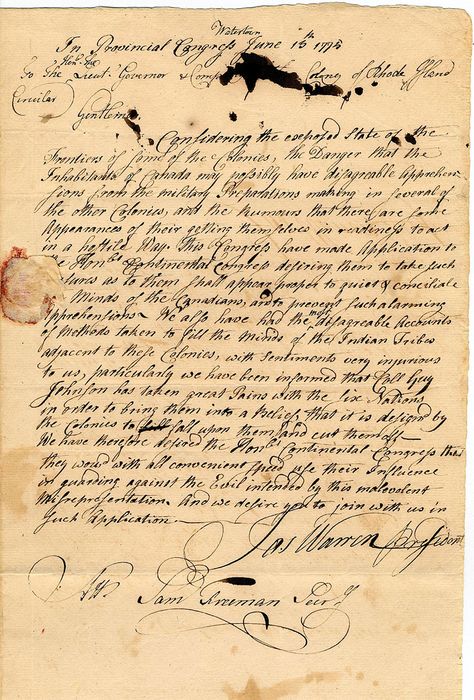 Watertown
In Provincial Congress June 15th 1775
Honble the
To The Lieut. Governor & Comp Colony of Rhode Island
Circular
Gentlemen
Considering the exposed State of the
Frontiers of some of the Colonies, the Danger that the
Inhabitants of Canada may possibly have disagreable Apprehen-
sions from the military Preparations making in several of
the other Colonies, and the Rumours that there are some
Appearances of their getting themselves in readiness to act
in a hostile Way. This Congress have made Application to
the Honble Continental Congress desiring them to take such
sures as to them shall appear proper to quiet & conciliate
Minds of the Canadians, and to prevent such alarming
Apprehensions. We also have had the most disagreable Accounts
of Methods taken to fill the Minds of the Indian Tribes
adjacent to these Colonies, with Sentiments very injurious
to us, particularly we have been informed that Coll Guy
Johnson has taken great Pains with the six Nations
in order to bring them into a Belief, that it is design'd by
the Colonies to fall upon them and cut them off—
We have therefore desired the Honble Continental Congress that
they would with all convenient speed use their Influence
in guarding against the Evil intended by this malevolent
Misrepresentation. And we desire you to join with us in
such Application.—
Jas Warren President
Att
Saml Freeman Secry